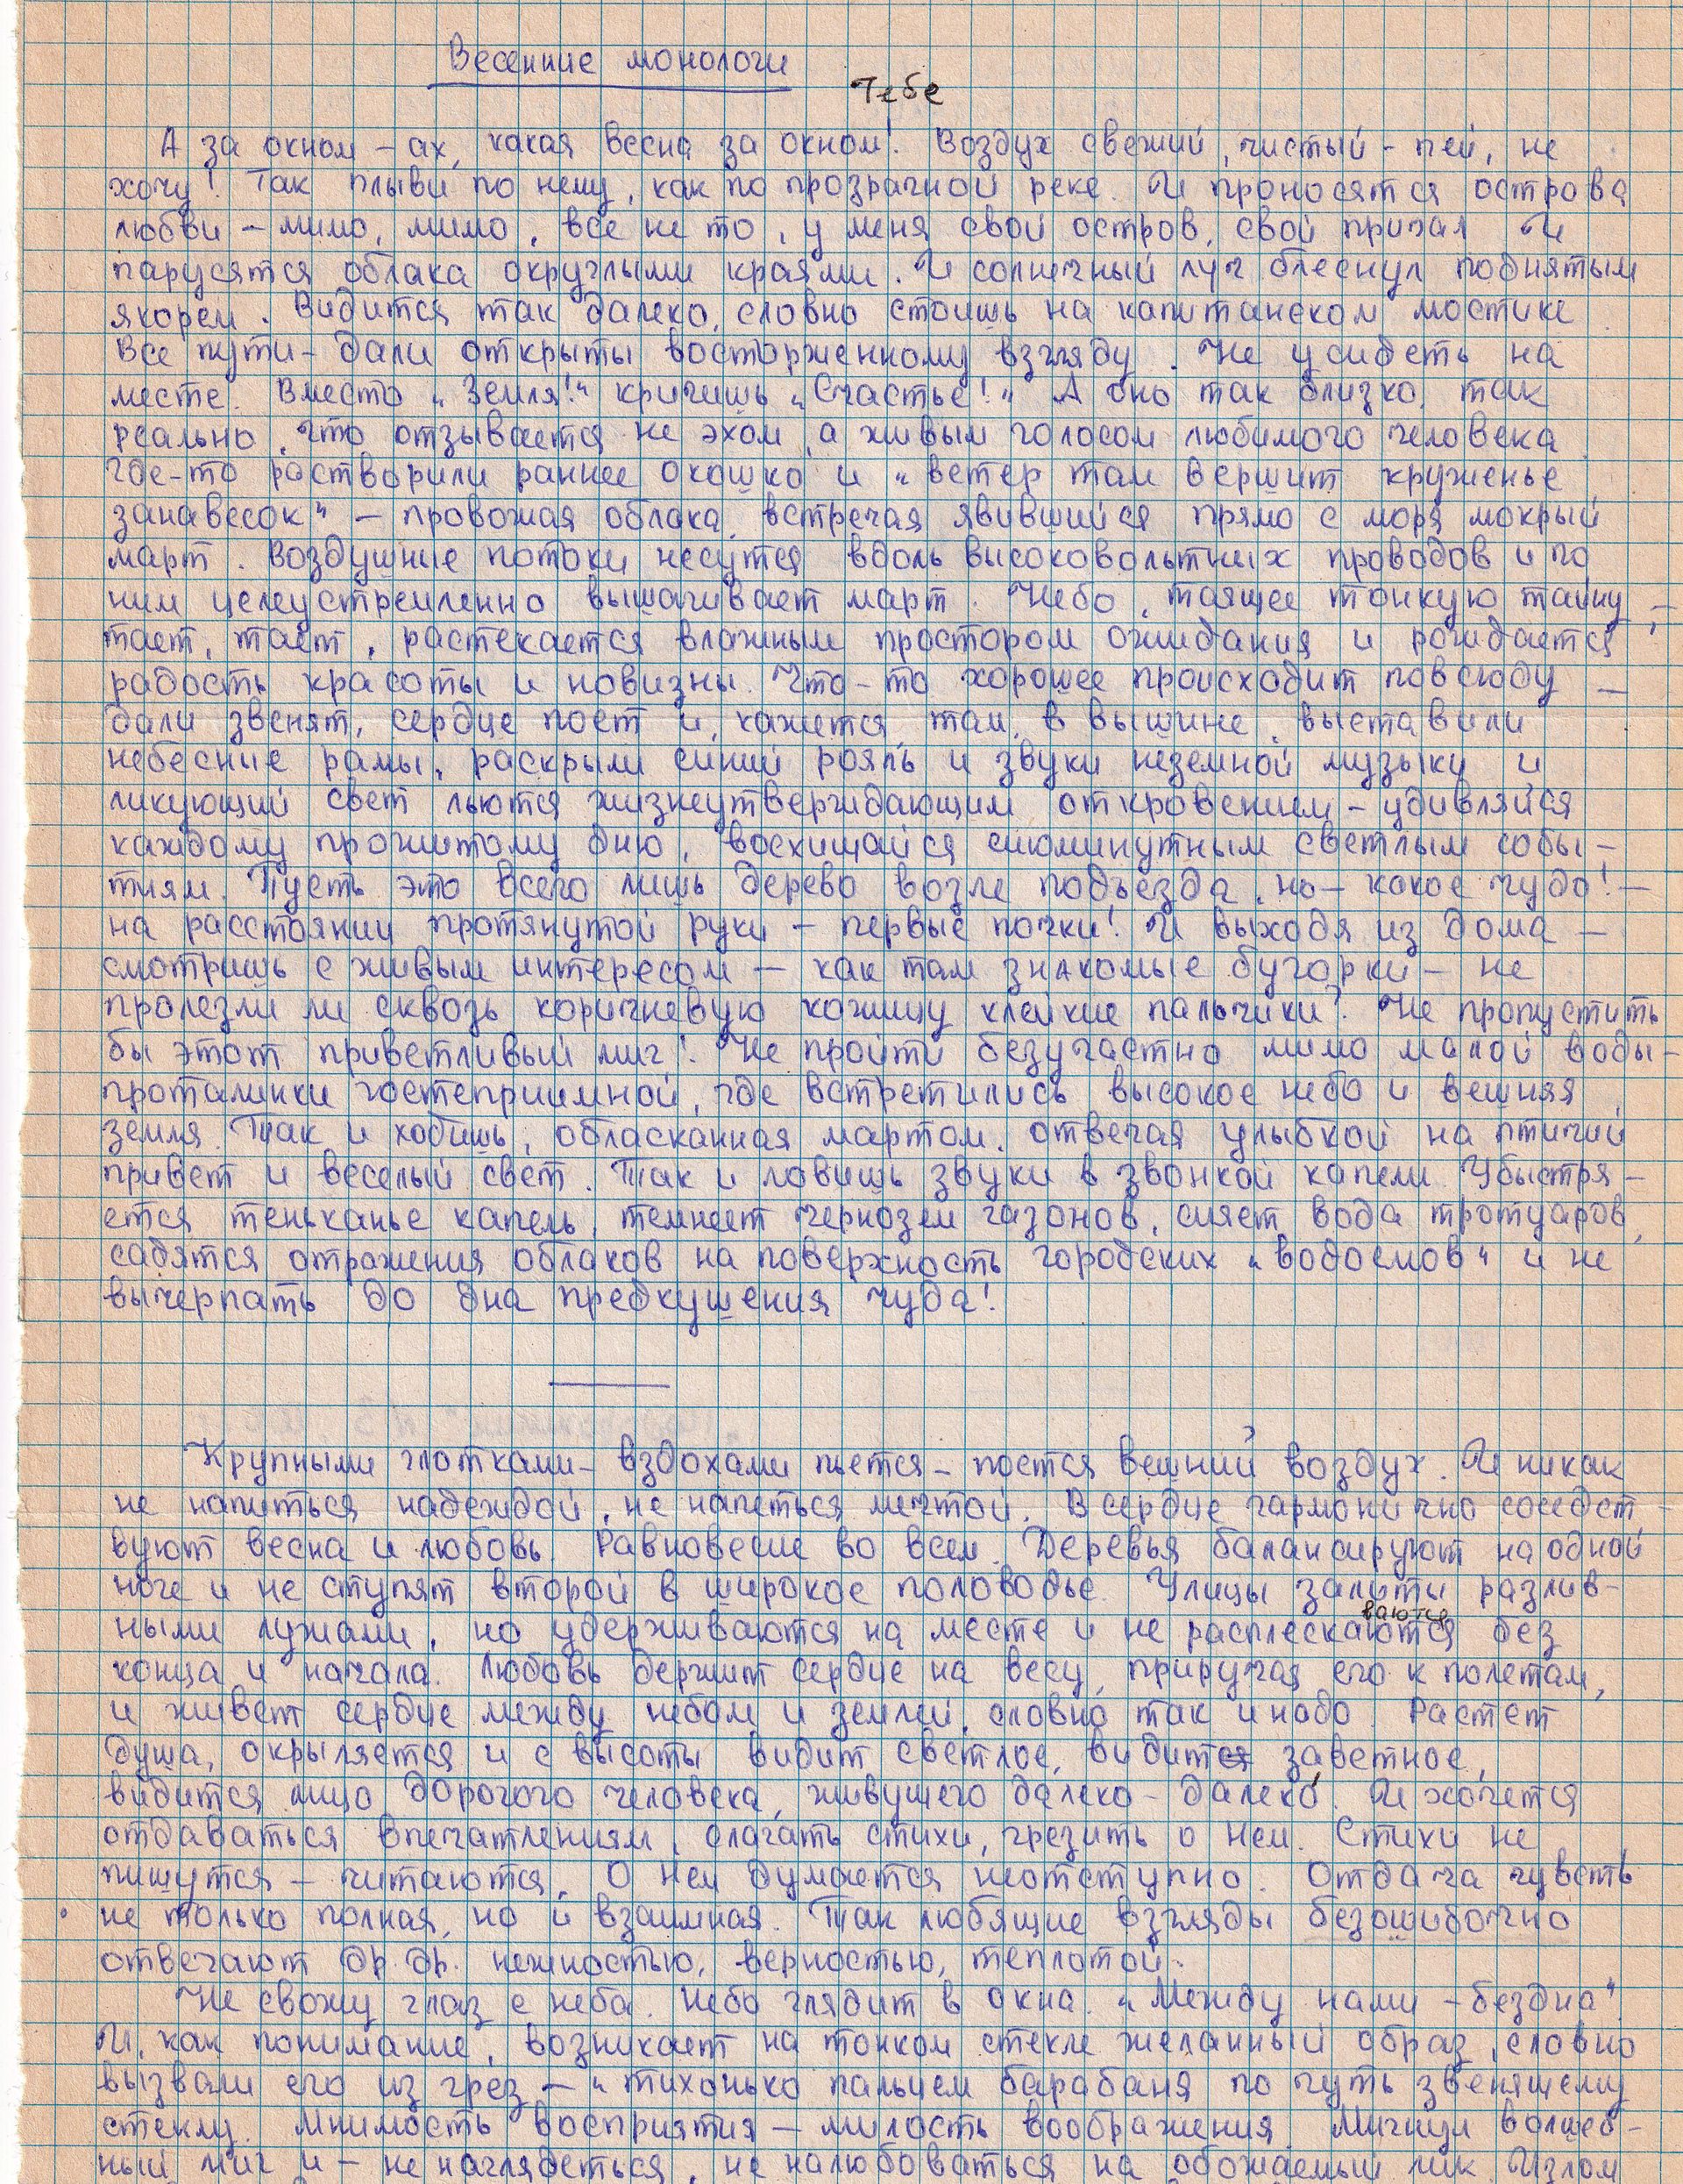 Весенние монологи
Тебе
А за окном – ах, какая весна за окном! Воздух свежий, чистый – пей, не
хочу! Так плыви по нему, как по прозрачной реке. И проносятся острова
любви – мимо, мимо, все не то, у меня свой остров, свой причал. И
парусятся облака округлыми краями. И солнечный луч блеснул поднятым
якорем. Видится так далеко, словно стоишь на капитанском мостике.
Все пути-дали открыты восторженному взгляду. Не усидеть на
месте. Вместо „Земля!“ кричишь „Счастье!“ А оно так близко, так
реально, что отзывается не эхом, а живым голосом любимого человека.
Где-то растворили раннее окошко и „ветер там вершит круженье
занавесок“ – провожая облака, встречая явившийся прямо с моря мокрый
март. Воздушные потоки несутся вдоль высоковольтных проводов и по
ним целеустремленно вышагивает март. Небо, таящее тонкую тайну, –
тает, тает, растекается влажным простором ожидания и рождается
радость красоты и новизны. Что-то хорошее происходит повсюду –
дали звенят, сердце поет и, кажется, там, в вышине, выставили
небесные рамы, раскрыли синий рояль и звуки неземной музыки и
ликующий свет льются жизнеутверждающим откровением – удивляйся
каждому прожитому дню, восхищайся сиюминутным светлым собы-
тиям. Пусть это всего лишь дерево возле подъезда, но – какое чудо! –
на расстоянии протянутой руки – первые почки! И выходя из дома –
смотришь с живым интересом – как там знакомые бугорки – не
пролезли ли сквозь коричневую кожицу клейкие пальчики? Не пропустить
бы этот приветливый миг! Не пройти безучастно мимо малой воды-
проталинки гостеприимной, где встретились высокое небо и вешняя
земля. Так и ходишь, обласканная мартом, отвечая улыбкой на птичий
привет и веселый свет. Так и ловишь звуки в звонкой капели. Убыстря-
ется теньканье капель, темнеет чернозем газонов, сияет вода тротуаров,
садятся отражения облаков на поверхность городских „водоемов“ и не
вычерпать до дна предвкушения чуда!
Крупными глотками-вздохами пьется-поется вешний воздух. И никак
не напиться надеждой, не напеться мечтой. В сердце гармонично соседст-
вуют весна и любовь. Равновесие во всем. Деревья балансируют на одной
ноге и не ступят второй в широкое половодье. Улицы залиты разлив-
ваются
ными лужами, но удерживаются на месте и не расплескаются без
конца и начала. Любовь держит сердце на весу, приручая его к полетам,
и живет сердце между небом и землей, словно так и надо. Растет
душа, окрыляется и с высоты видит светлое, видится заветное,
видится лицо дорогого человека, живущего далеко-далеко. И хочется
отдаваться впечатлениям, слагать стихи, грезить о нем. Стихи не
пишутся – читаются. О нем думается неотступно. Отдача чувств
не только полная, но и взаимная. Так любящие взгляды безошибочно
отвечают др. др. нежностью, верностью, теплотой.
Не свожу глаз с неба. Небо глядит в окна. „Между нами – бездна“.
И, как понимание, возникает на тонком стекле желанный образ, словно
вызвали его из грез – „тихонько пальцем барабаня по чуть звенящему
стеклу. Мнимость восприятия – милость воображения.
ный миг и – не наглядеться, не налюбоваться на обожаемый лик